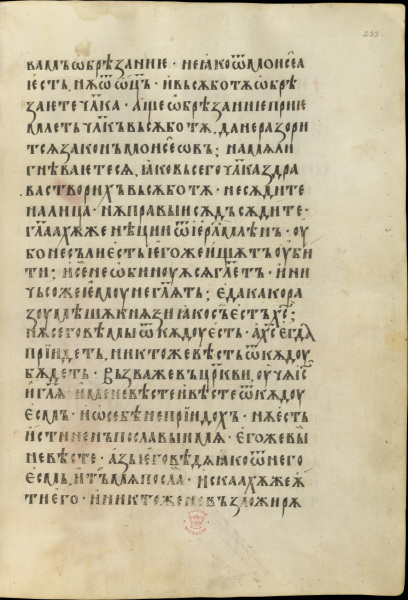 233
вамъ ѡбрѣзанⷩ҇їе · не ꙗко ѿ моѵсеа
іесть, нѫ ѿ ѡц҃ъ · и въ сѫботѫ ѡбрѣ
заіете чл҃ка · аще ѡбрѣзаніе прїіе
млетъ чл҃къ въ сѫботѫ, да не разори
тсѧ законъ моѵсеѡвъ; на мѧ ли
гнѣваіетесѧ, ꙗко всего чл҃ка здра
ва створихъ въ сѫботѫ · не сѫдите
на лица · нѫ правыи сѫдъ сѫдите ·
гл҃аахѫ же нѣции ѿ іер҃лмлѣнъ · оу
бо не съ ли іестъ іегоже ищѫтъ оуби
ти; и се не ѡбиноуѧсѧ гл҃етъ · и ни
чьсоже іемоу не гл҃ѧтъ; еда како ра
зоумѣшѫ кнѧзи ꙗко съ естъ х҃с;
нѫ сего вѣмы ѿкѫдоу есть · а х҃с егда
прїидетъ, никтоже вѣстъ ѿкѫдоу
бѫдетъ · възваже въ цр҃кви, оучѧ іс҃
и гл҃ѧ · и мене вѣсте и вѣсте ѿкѫдоу
есмъ · и ѡ себѣ не прїидохъ · нѫ есть
истиненъ пославыи мѧ · егоже вы
не вѣсте · азъ іего вѣдѧ ꙗко ѿ него
есмь, и тъ мѧ посла · искаахѫ же ѧ
ти іего · и никтоже не възложи рѫ